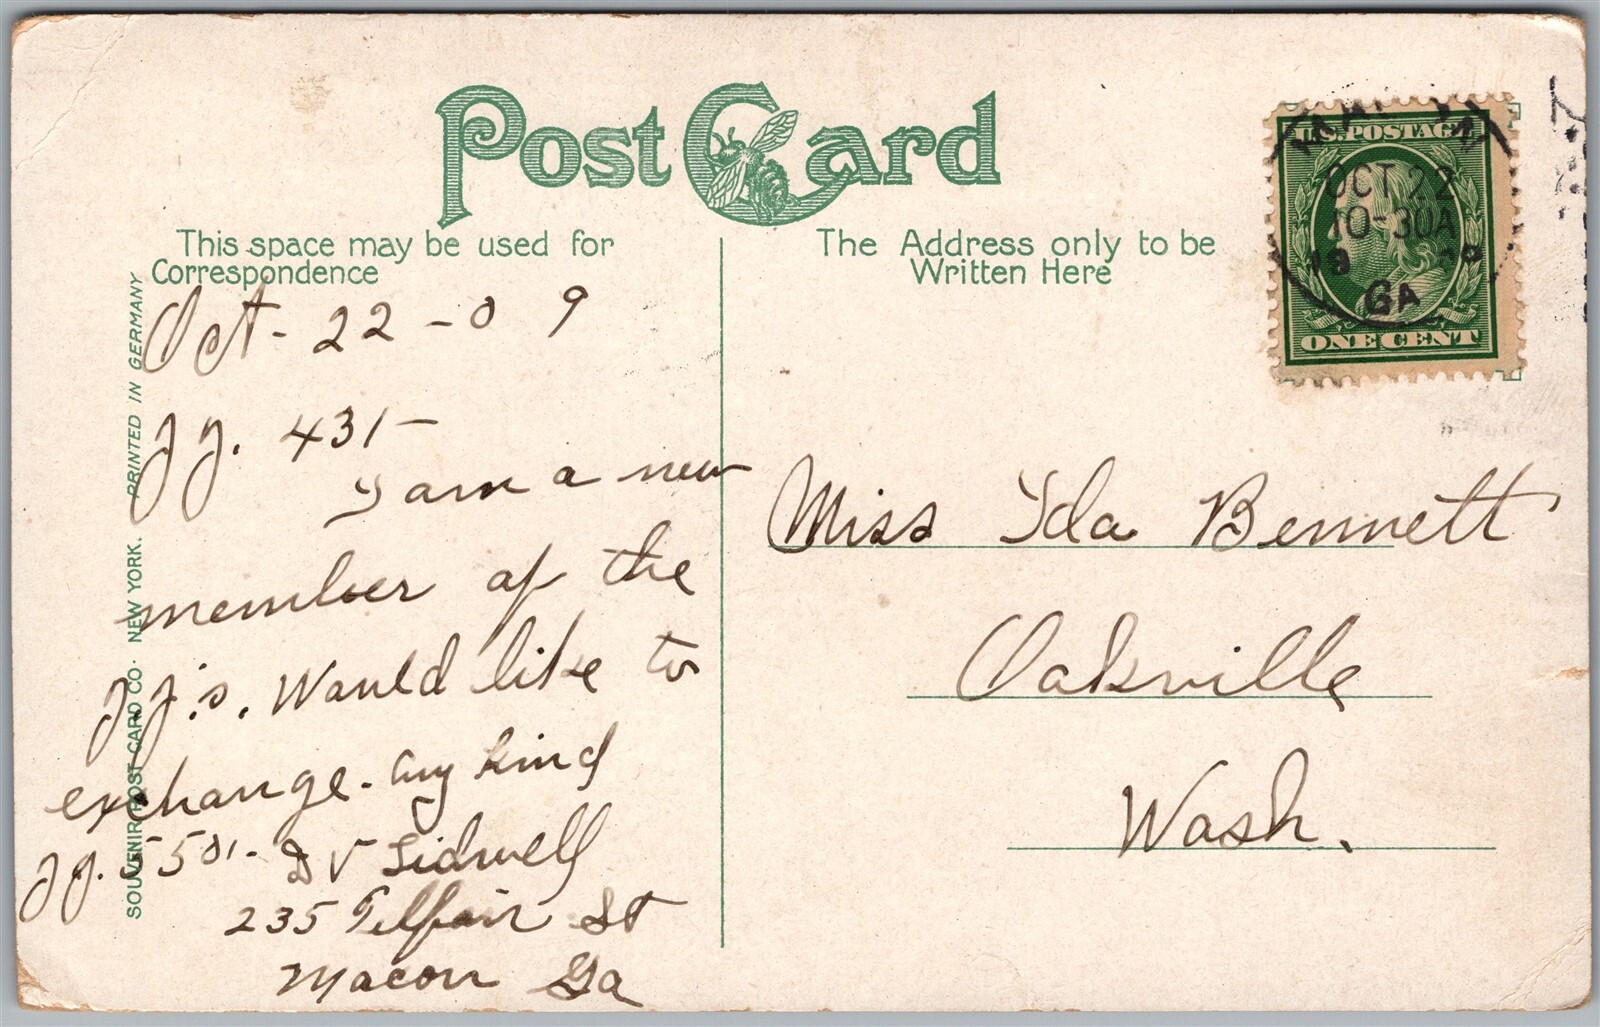 Post Card
This space may be used for
Correspondence
The Address only to be
Written Here
U.S. POSTAGE
OCT 22
10-30A
GA
ONE CENT
SOUVENIR POST CARD CO. NEW YORK. PRINTED IN GERMANY
Oct - 22 - 09
J J. 431 -
I am a new
member of the
J.J.'s. Would like to
exchange. any kind
JJ. 5501. D V Sidwell
235 Telfair St
Macon Ga
Miss Ida Bennett
Oakville
Wash.